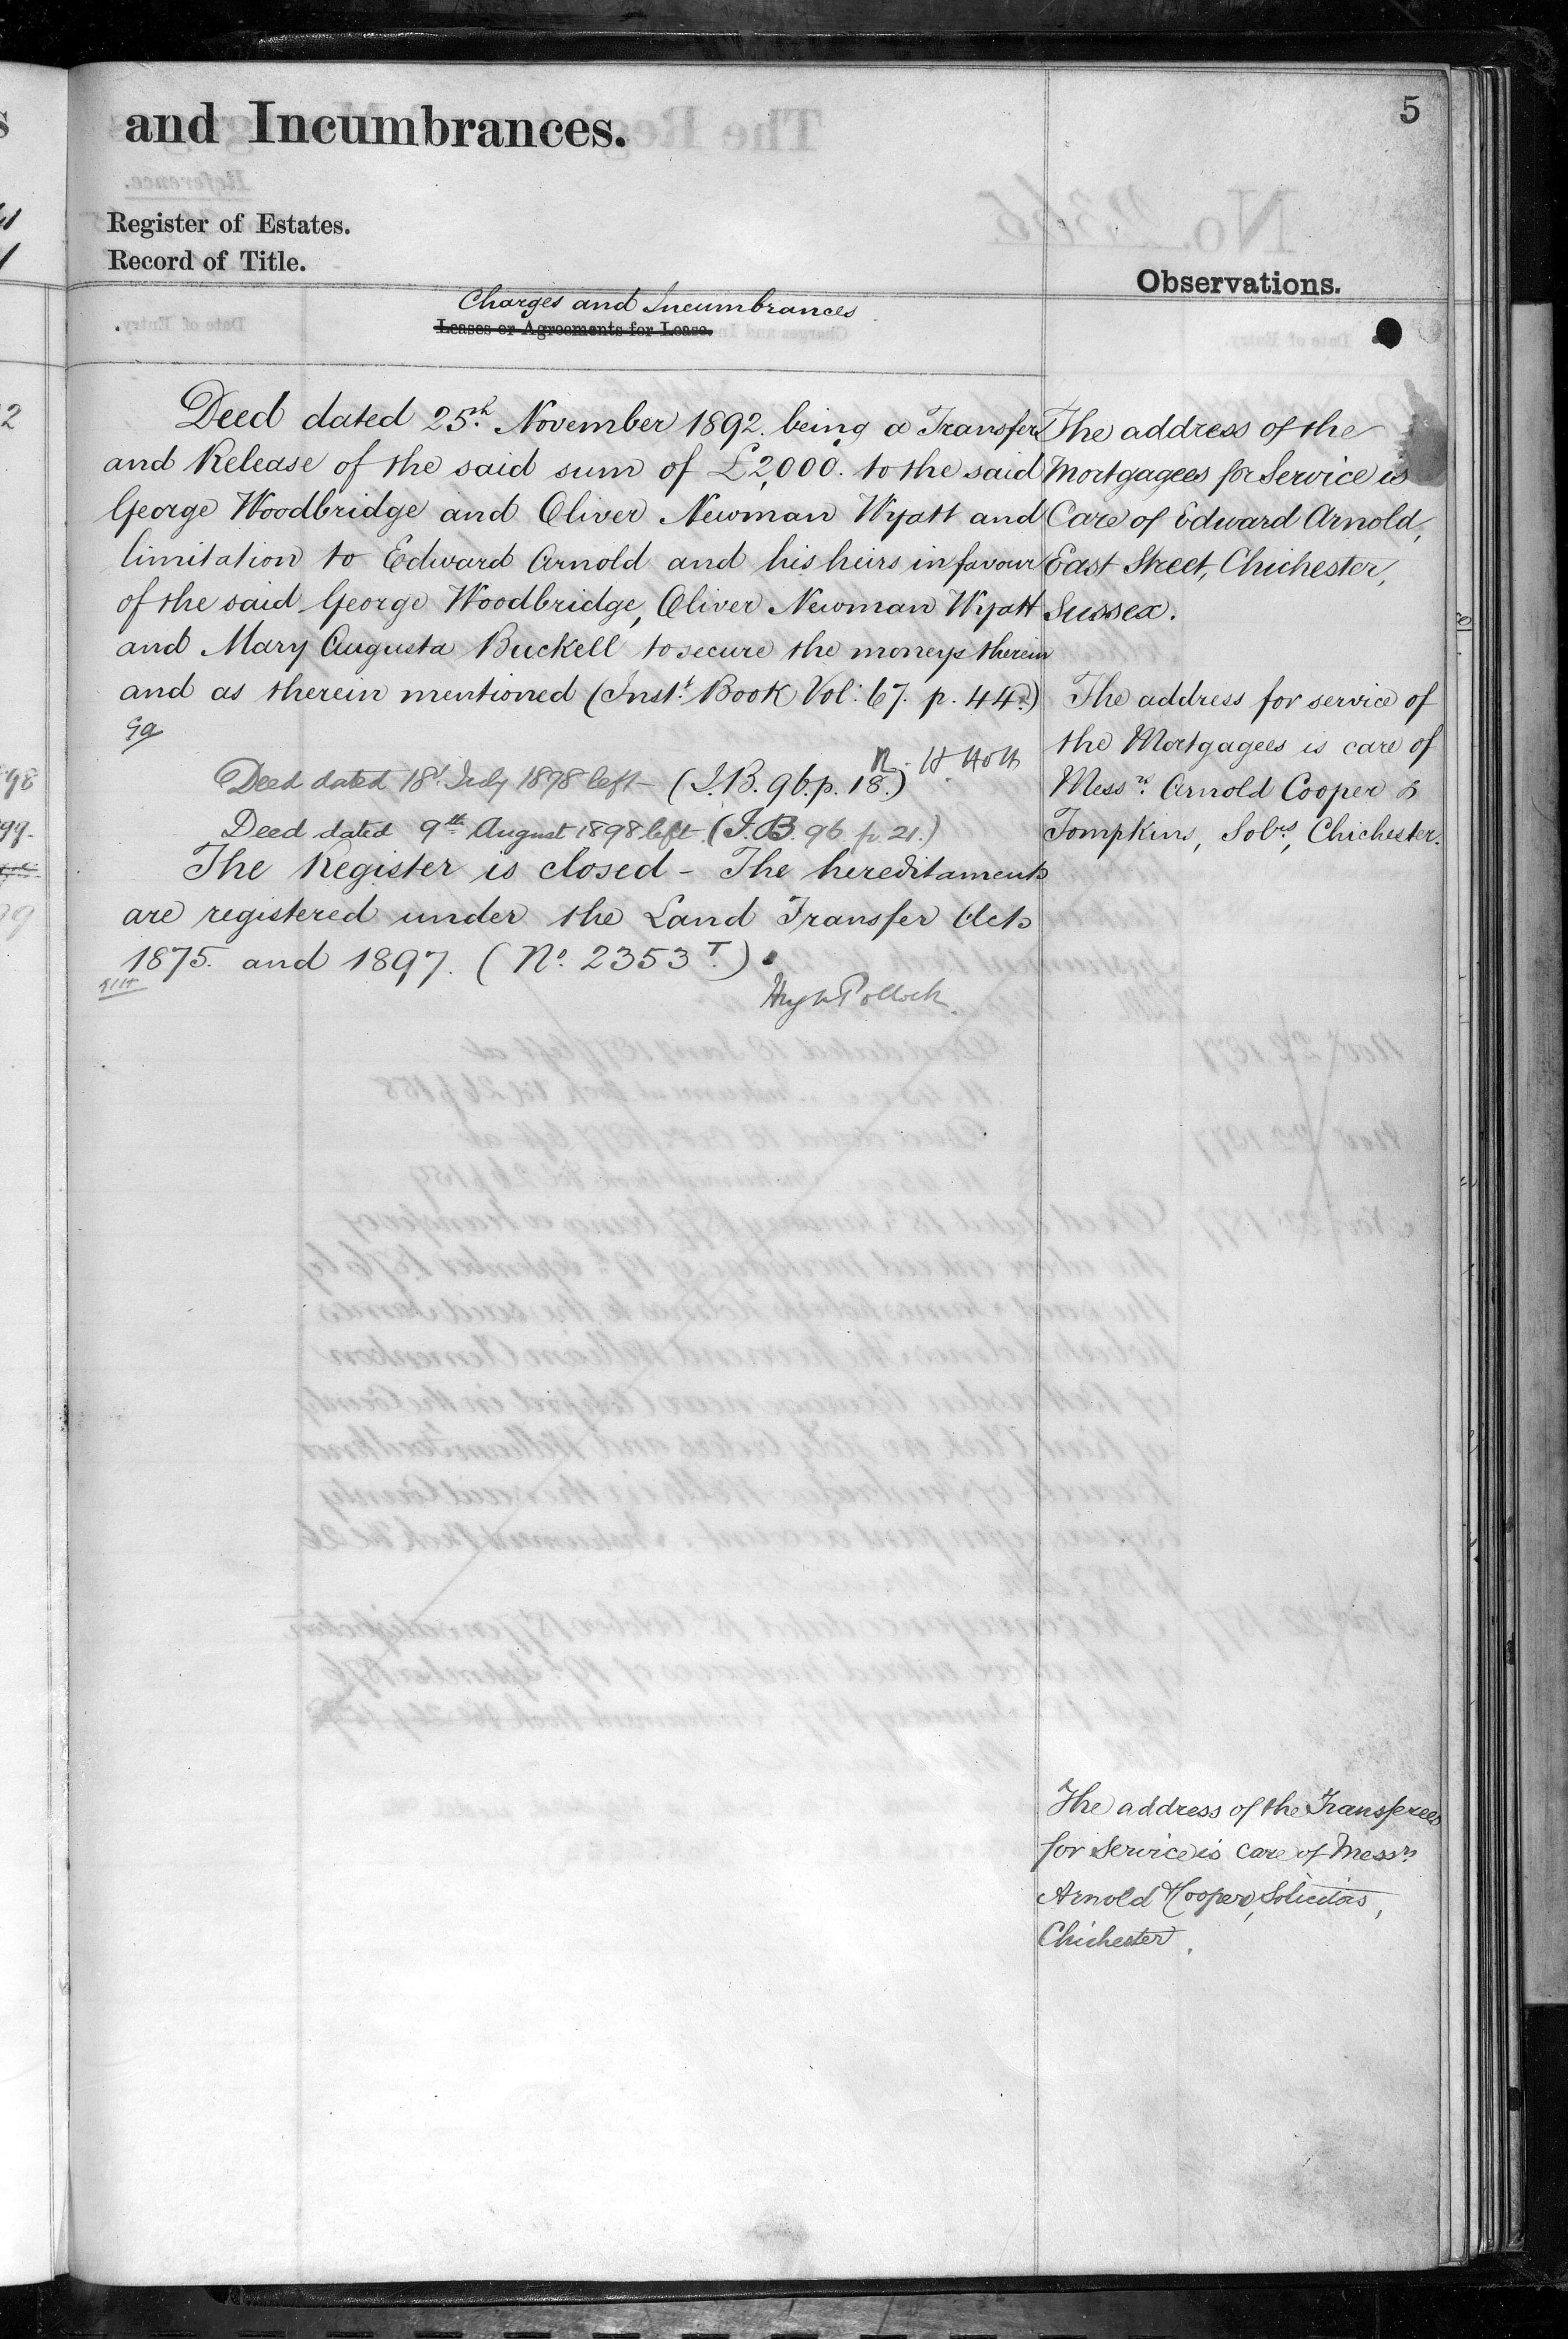 5
and Incumbrances.
Register of Estates.
Record of Title.
Observations.
Charges and Incumbrances
Leases or Agreements for Lease.
Deed dated 25th. November 1892. being a Transfer
and Release of the said sum of £2,000. to the said
George Woodbridge and Oliver Newman Wyatt and
limitation to Edward Arnold and his heirs in favour
of the said George Woodbridge, Oliver Newman Wyatt
and Mary Augusta Buckell to secure the moneys therein
and as therein mentioned (Inst.t Book Vol: 67. p. 44.)
N. H. Holt
Deed dated 18t July 1898 left - (I.B. 96. p. 18.)
Deed dated 9th August 1898 left - (I.B. 96 p. 21.)
The Register is closed - The hereditaments
are registered under the Land Transfer Acts
1875. and 1897. (No. 2353 T.).
Hugh Pollock.
The address of the
Mortgagees for Service is
Care of Edward Arnold,
East Street, Chichester,
Sussex.
The address for service of
the Mortgagees is care of
Messrs. Arnold Cooper &
Tompkins, Solrs, Chichester.
The address of the Transferees
for Service is care of Messrs.
Arnold & Cooper, Solicitors,
Chichester.